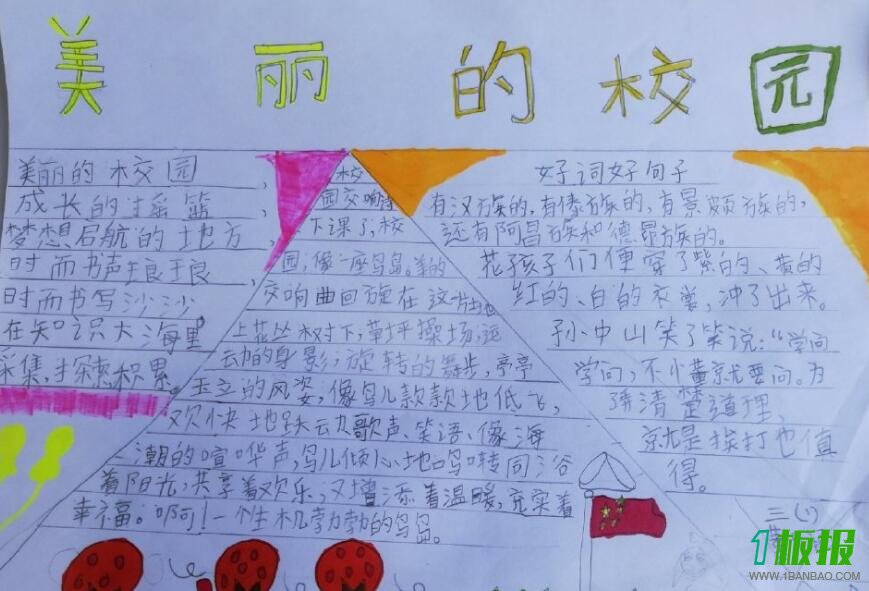 美丽的校园
美丽的校园，
成长的摇篮，
梦想启航的地方，
时而书声琅琅
时而书写沙沙
在知识大海里，
采集，探索积累。
校
园交响曲
下课了，校
园，像一座鸟岛。美的
交响曲回旋在这片土地
上花丛树下，草坪操场，运
动的身影，旋转的舞步，亭亭
玉立的风姿，像鸟儿款款地低飞，
欢快地跃动歌声、笑语、像海
潮的喧哗声，鸟儿倾心地鸣啭同浴
着阳光，共享着欢乐，又增添着温暖，充实着
幸福。啊！一个生机勃勃的鸟岛。
好词好句子
有汉族的，有傣族的，有景颇族的，
还有阿昌族和德昂族的。
花孩子们便穿了紫的、黄的
红的、白的衣裳，冲了出来。
孙中山笑了笑说：“学问
学问，不懂就要问。为
弄清楚道理，
就是挨打也值
得。
三(1)
1板报
WWW.1BANBAO.COM